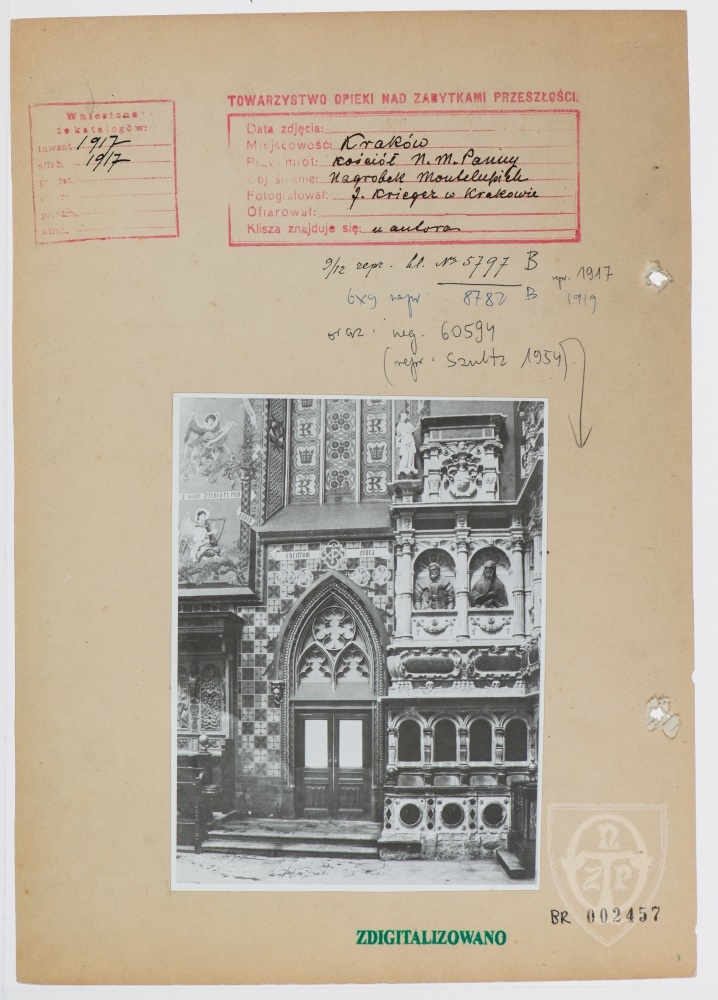 Wniesione
do katalogów:
inwent. 1917
1917
TOWARZYSTWO OPIEKI NAD ZABYTKAMI PRZESZŁOŚCI.
Data zdjęcia:
Miejscowość: Kraków
Przedmiot: Kościół N. M. Panny
Objaśnienie: Nagrobek Montelupich
Fotografował: J. Krieger w Krakowie
Ofiarował:
Klisza znajduje się: u autora
9/12 repr. kl. No 5797 B repr. 1917
6x9 repr 8782 B 1919
oraz neg. 60594
(repr. Szultz 1954)
K K
K K
BR 002457
ZDIGITALIZOWANO
T N Z P